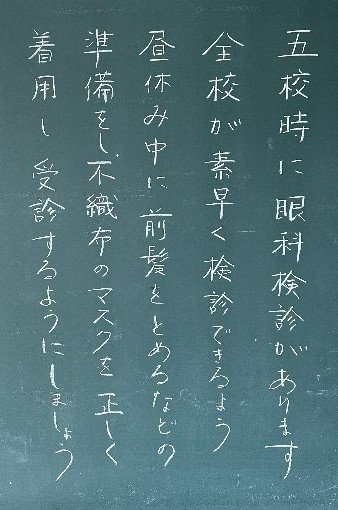 五校時に眼科検診があります
全校が素早く検診できるよう
昼休み中に前髪をとめるなどの
準備をし、不織布のマスクを正しく
着用し受診するようにしましょう